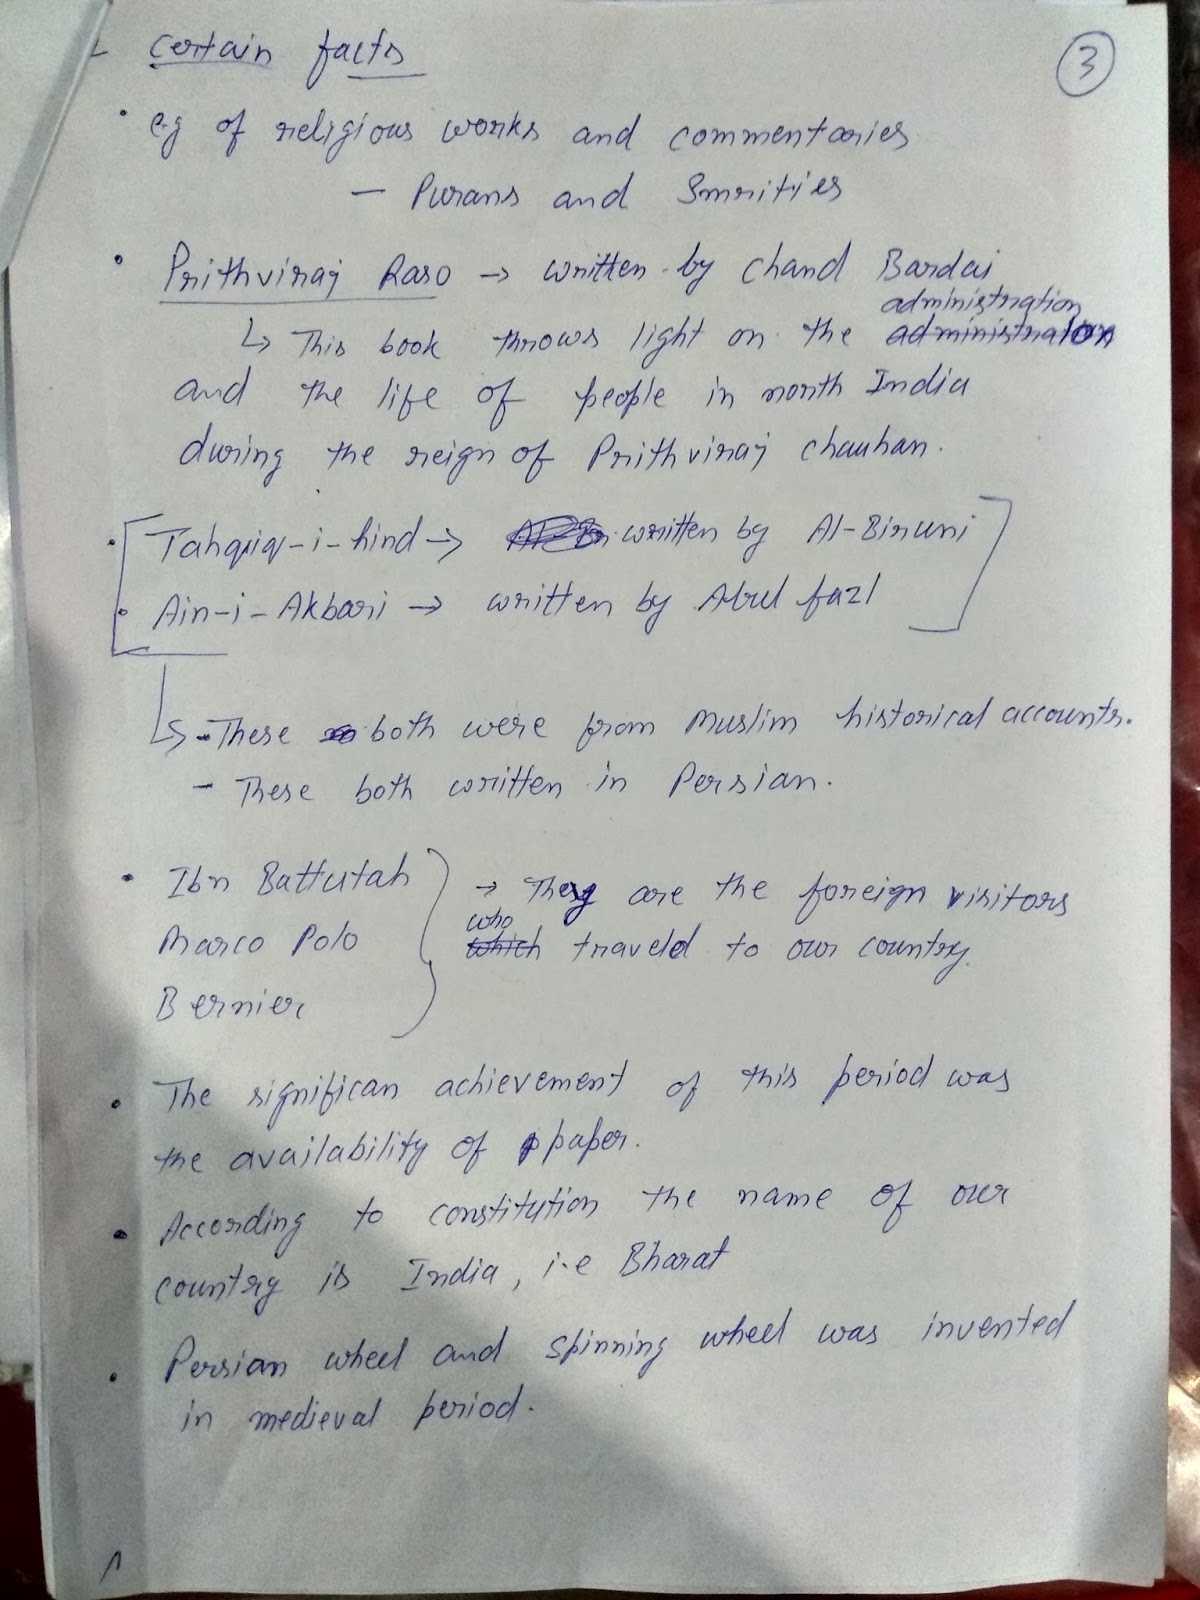 Certain facts
3
• e.g of religious works and commentaries
— Purans and Smrities
• Prithviraj Raso → written by Chand Bardai
administration
↳ This book throws light on the administration
and the life of people in north India
during the reign of Prithviraj chauhan.
• Tahqiq-i-hind → written by Al-Biruni
• Ain-i-Akbari → written by Abul fazl
↳ - These both were from Muslim historical accounts.
- These both written in Persian.
• Ibn Battutah
Marco Polo
Bernier
→ They are the foreign visitors
who
which traveld to our country.
• The significan achievement of this period was
the availability of paper.
• According to constitution the name of our
country is India, i.e Bharat
• Persian wheel and spinning wheel was invented
in medieval period.